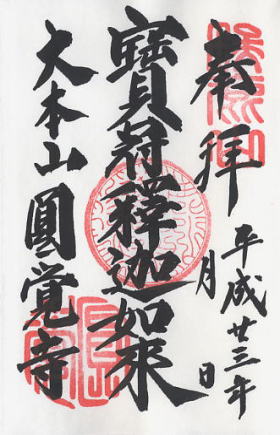 奉拝
平成廿三年 月 日
寳冠釋迦如来
大本山圓覚寺